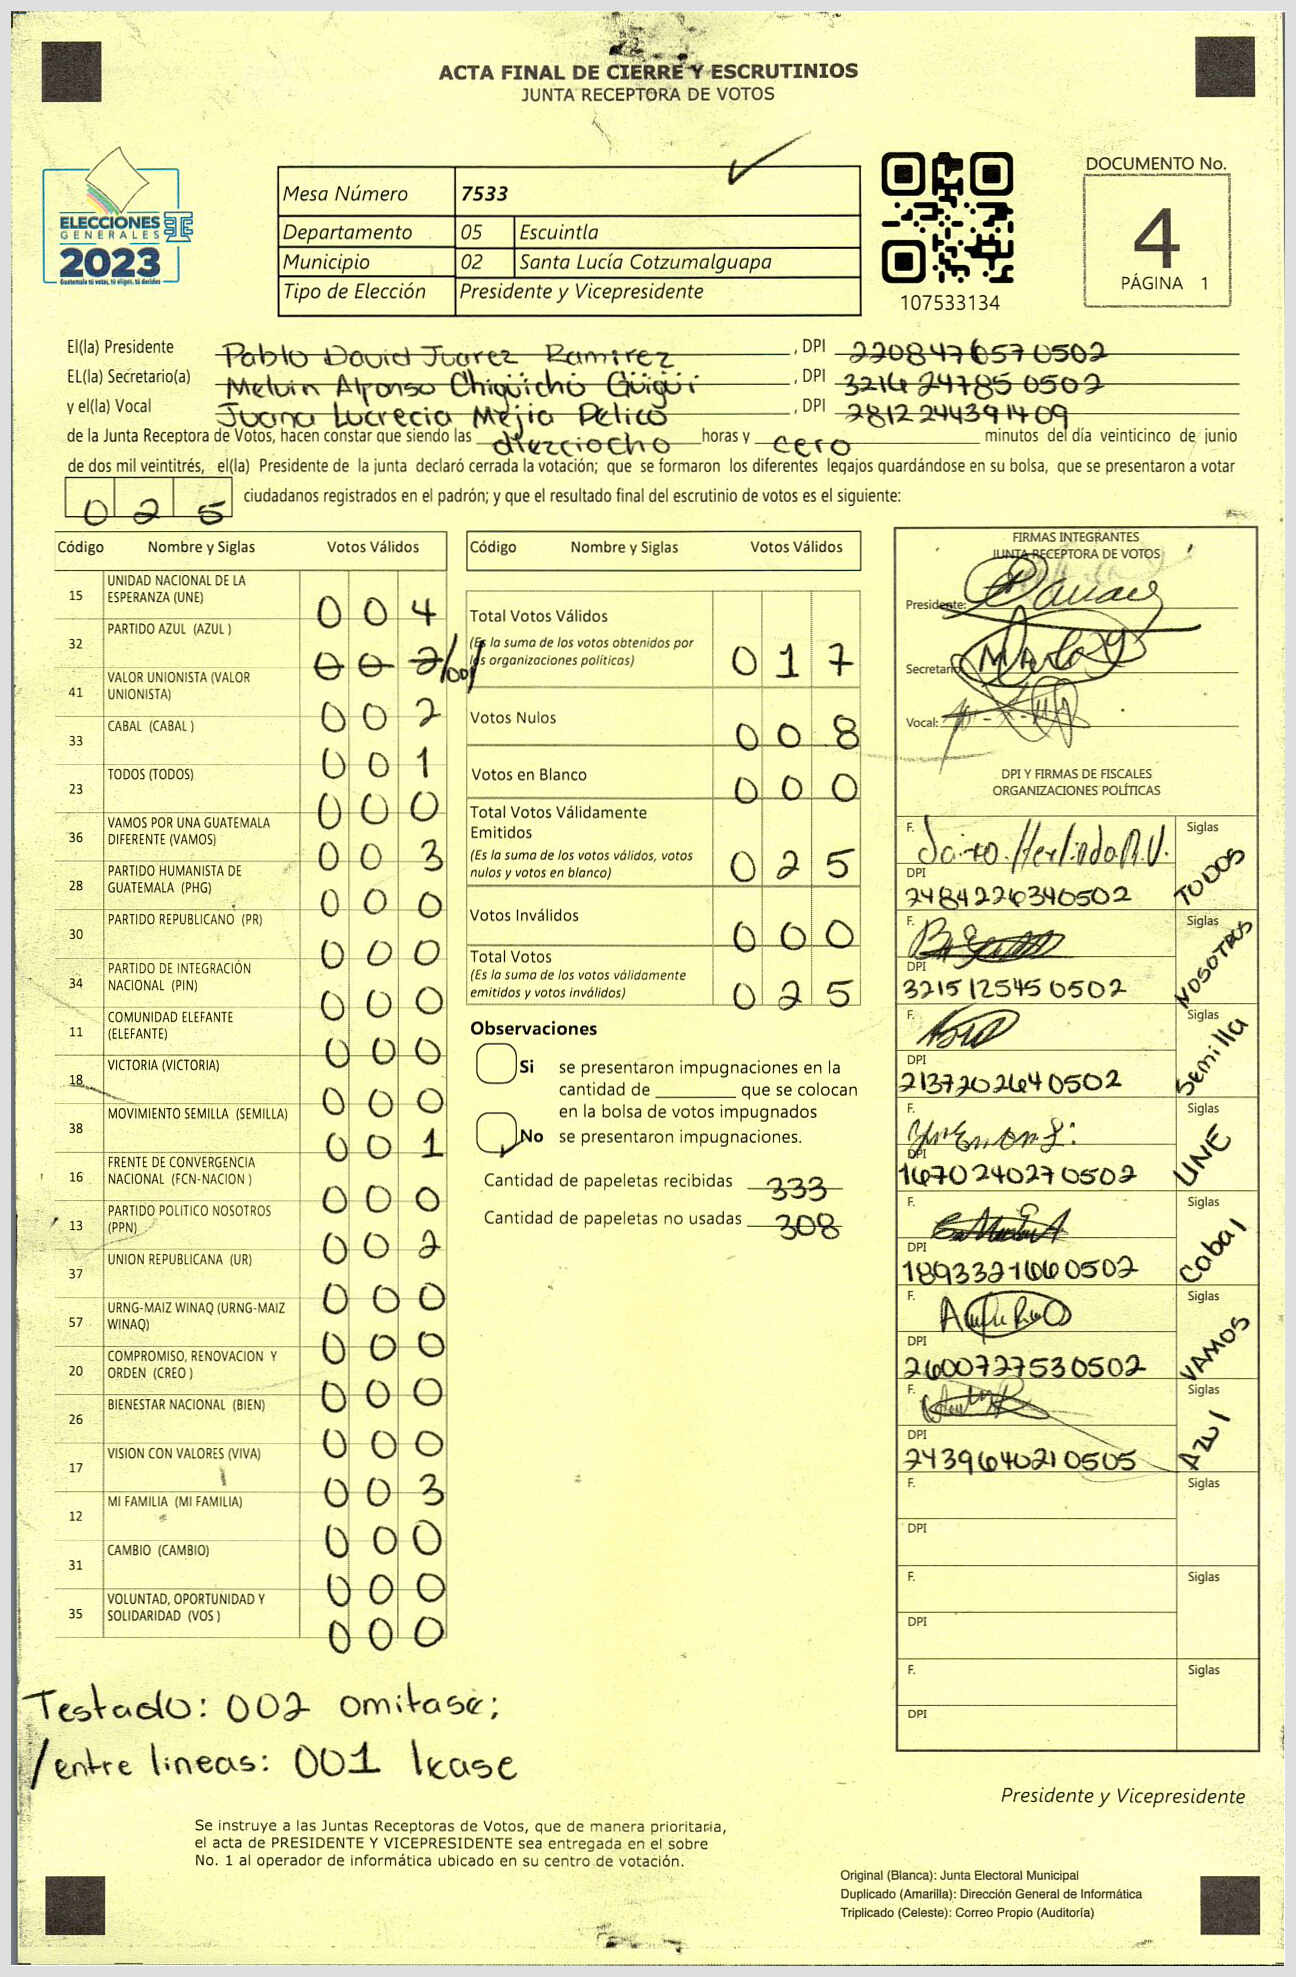 ACTA FINAL DE CIERRE Y ESCRUTINIOS
JUNTA RECEPTORA DE VOTOS
ELECCIONES
GENERALES
TSE
2023
Guatemala tú votas, tú eliges, tú decides
Mesa Número 7533
Departamento 05 Escuintla
Municipio 02 Santa Lucía Cotzumalguapa
Tipo de Elección Presidente y Vicepresidente
107533134
DOCUMENTO No.
4
PÁGINA 1
El(la) Presidente Pablo David Juarez Ramirez, DPI 2208476570502
EL(la) Secretario(a) Melvin Alfonso Chigüichú Güigüi, DPI 3214247850502
y el(la) Vocal Juana Lucrecia Mejia Pelico, DPI 2812244391409
de la Junta Receptora de Votos, hacen constar que siendo las dieciocho horas y cero minutos del día veinticinco de junio
de dos mil veintitrés, el(la) Presidente de la junta declaró cerrada la votación; que se formaron los diferentes legajos guardándose en su bolsa, que se presentaron a votar
025 ciudadanos registrados en el padrón; y que el resultado final del escrutinio de votos es el siguiente:
Código Nombre y Siglas Votos Válidos
15 UNIDAD NACIONAL DE LA ESPERANZA (UNE) 004
32 PARTIDO AZUL (AZUL ) 002 /001/
41 VALOR UNIONISTA (VALOR UNIONISTA) 002
33 CABAL (CABAL ) 001
23 TODOS (TODOS) 000
36 VAMOS POR UNA GUATEMALA DIFERENTE (VAMOS) 003
28 PARTIDO HUMANISTA DE GUATEMALA (PHG) 000
30 PARTIDO REPUBLICANO (PR) 000
34 PARTIDO DE INTEGRACIÓN NACIONAL (PIN) 000
11 COMUNIDAD ELEFANTE (ELEFANTE) 000
18 VICTORIA (VICTORIA) 000
38 MOVIMIENTO SEMILLA (SEMILLA) 001
16 FRENTE DE CONVERGENCIA NACIONAL (FCN-NACION ) 000
13 PARTIDO POLITICO NOSOTROS (PPN) 002
37 UNION REPUBLICANA (UR) 000
57 URNG-MAIZ WINAQ (URNG-MAIZ WINAQ) 000
20 COMPROMISO, RENOVACION Y ORDEN (CREO ) 000
26 BIENESTAR NACIONAL (BIEN) 000
17 VISION CON VALORES (VIVA) 003
12 MI FAMILIA (MI FAMILIA) 000
31 CAMBIO (CAMBIO) 000
35 VOLUNTAD, OPORTUNIDAD Y SOLIDARIDAD (VOS ) 000
Código Nombre y Siglas Votos Válidos
Total Votos Válidos
(Es la suma de los votos obtenidos por
las organizaciones políticas) 017
Votos Nulos 008
Votos en Blanco 000
Total Votos Válidamente
Emitidos
(Es la suma de los votos válidos, votos
nulos y votos en blanco) 025
Votos Inválidos 000
Total Votos
(Es la suma de los votos válidamente
emitidos y votos inválidos) 025
Observaciones
Si se presentaron impugnaciones en la
cantidad de ________ que se colocan
en la bolsa de votos impugnados
No se presentaron impugnaciones.
Cantidad de papeletas recibidas 333
Cantidad de papeletas no usadas 308
FIRMAS INTEGRANTES
JUNTA RECEPTORA DE VOTOS
Presidente:
Secretario:
Vocal:
DPI Y FIRMAS DE FISCALES
ORGANIZACIONES POLÍTICAS
F. Siglas TODOS
DPI
2484226340502
F. Siglas NOSOTROS
DPI
3215125450502
F. Siglas Semilla
DPI
2137202640502
F. Siglas UNE
DPI
1670240270502
F. Siglas Cabal
DPI
1893321660502
F. Siglas VAMOS
DPI
2600727530502
F. Siglas Azul
DPI
2439640210505
F. Siglas
DPI
F. Siglas
DPI
F. Siglas
DPI
Testado: 002 omitase;
/entre lineas: 001 lease
Presidente y Vicepresidente
Se instruye a las Juntas Receptoras de Votos, que de manera prioritaria,
el acta de PRESIDENTE Y VICEPRESIDENTE sea entregada en el sobre
No. 1 al operador de informática ubicado en su centro de votación.
Original (Blanca): Junta Electoral Municipal
Duplicado (Amarilla): Dirección General de Informática
Triplicado (Celeste): Correo Propio (Auditoría)